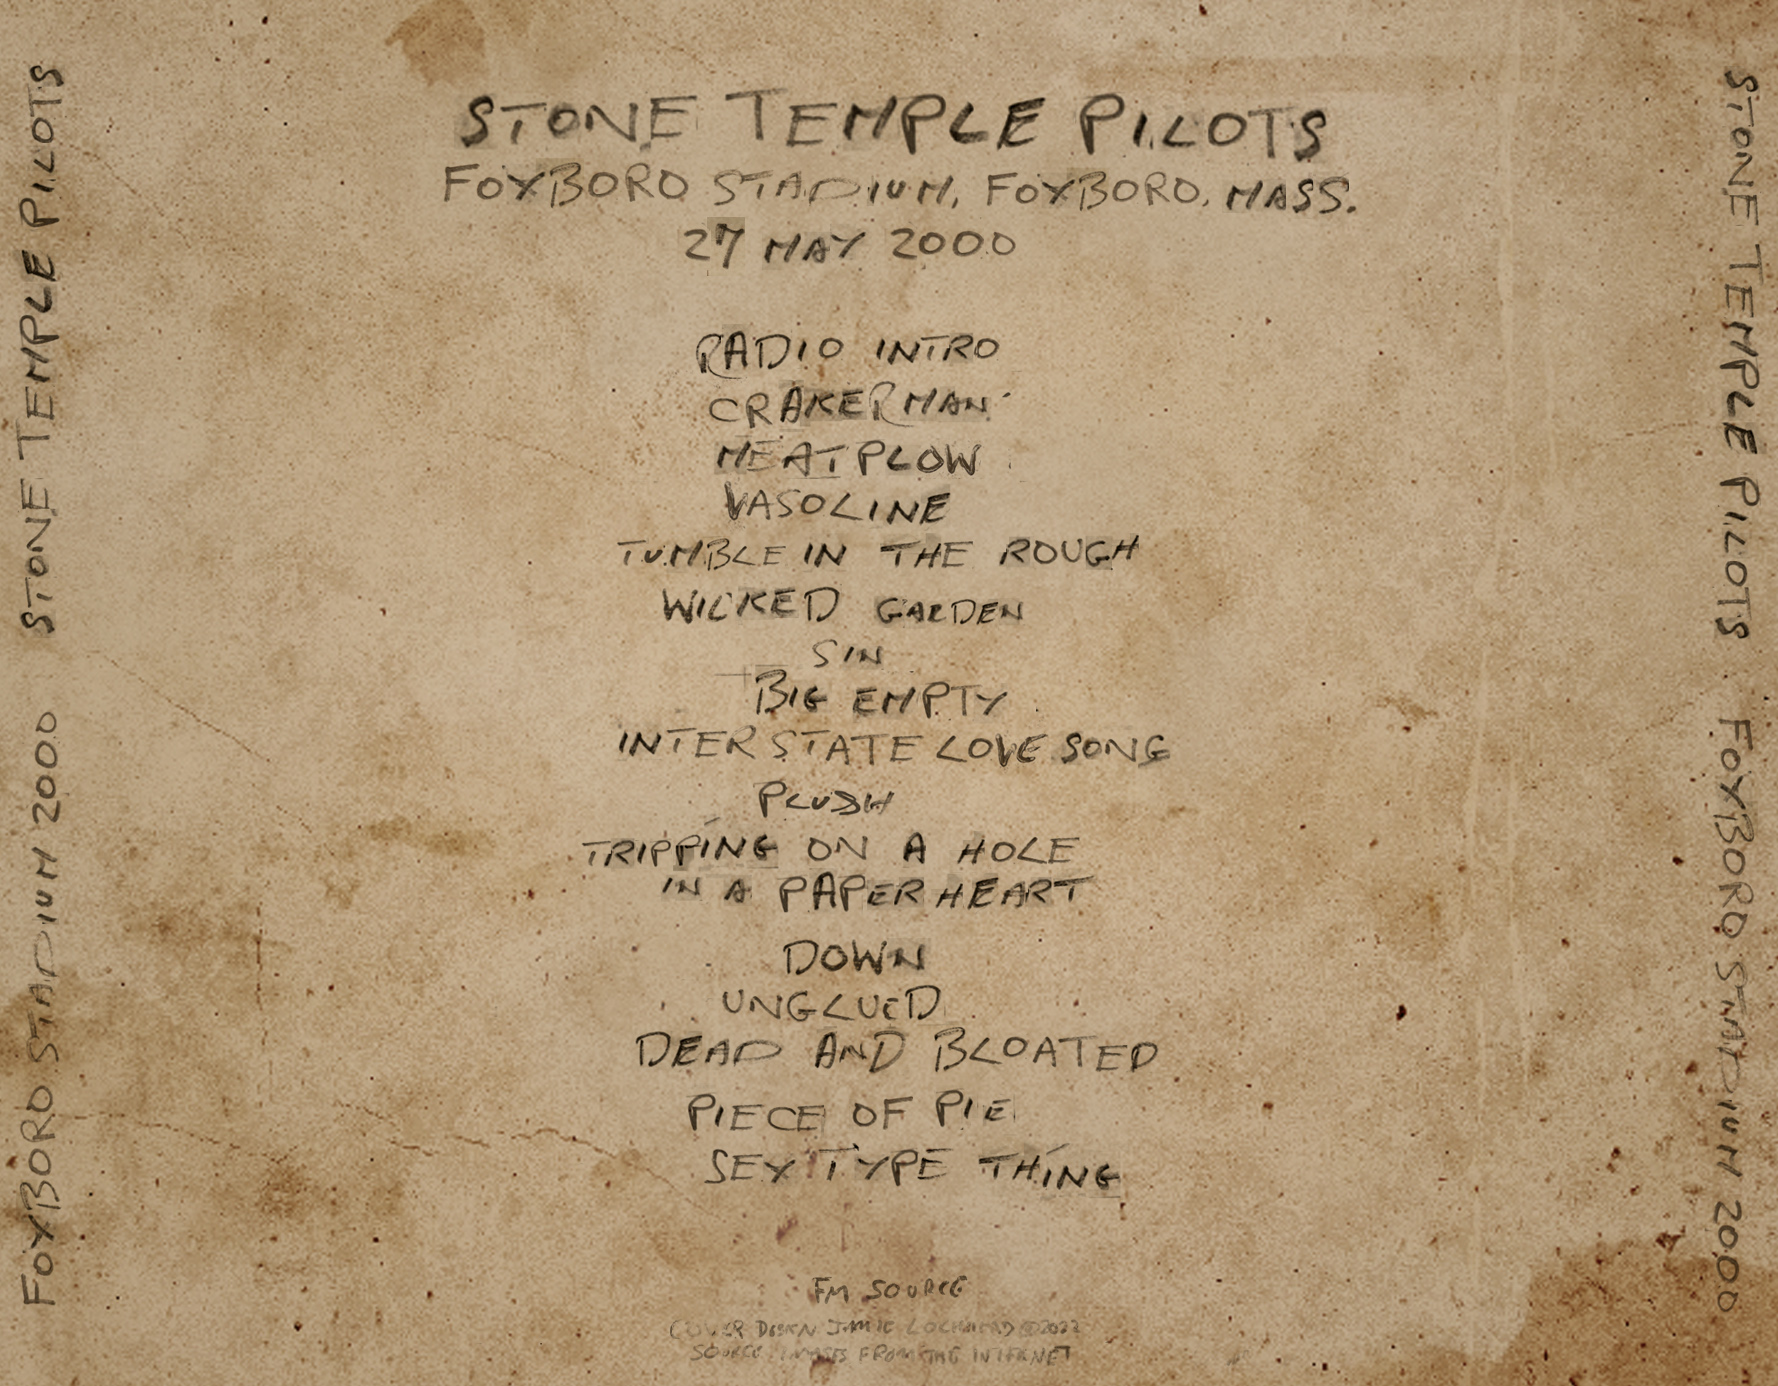 STONE TEMPLE PILOTS
FOXBORO STADIUM, FOXBORO, MASS.
27 MAY 2000
RADIO INTRO
CRAKERMAN
MEATPLOW
VASOLINE
TUMBLE IN THE ROUGH
WICKED GARDEN
SIN
BIG EMPTY
INTERSTATE LOVE SONG
PLUSH
TRIPPING ON A HOLE
IN A PAPER HEART
DOWN
UNGLUED
DEAD AND BLOATED
PIECE OF PIE
SEX TYPE THING
FM SOURCE
COVER DESIGN JAMIE LOCHHEAD ©2022
SOURCE IMAGES FROM THE INTERNET
STONE TEMPLE PILOTS FOXBORO STADIUM 2000
STONE TEMPLE PILOTS FOXBORO STADIUM 2000